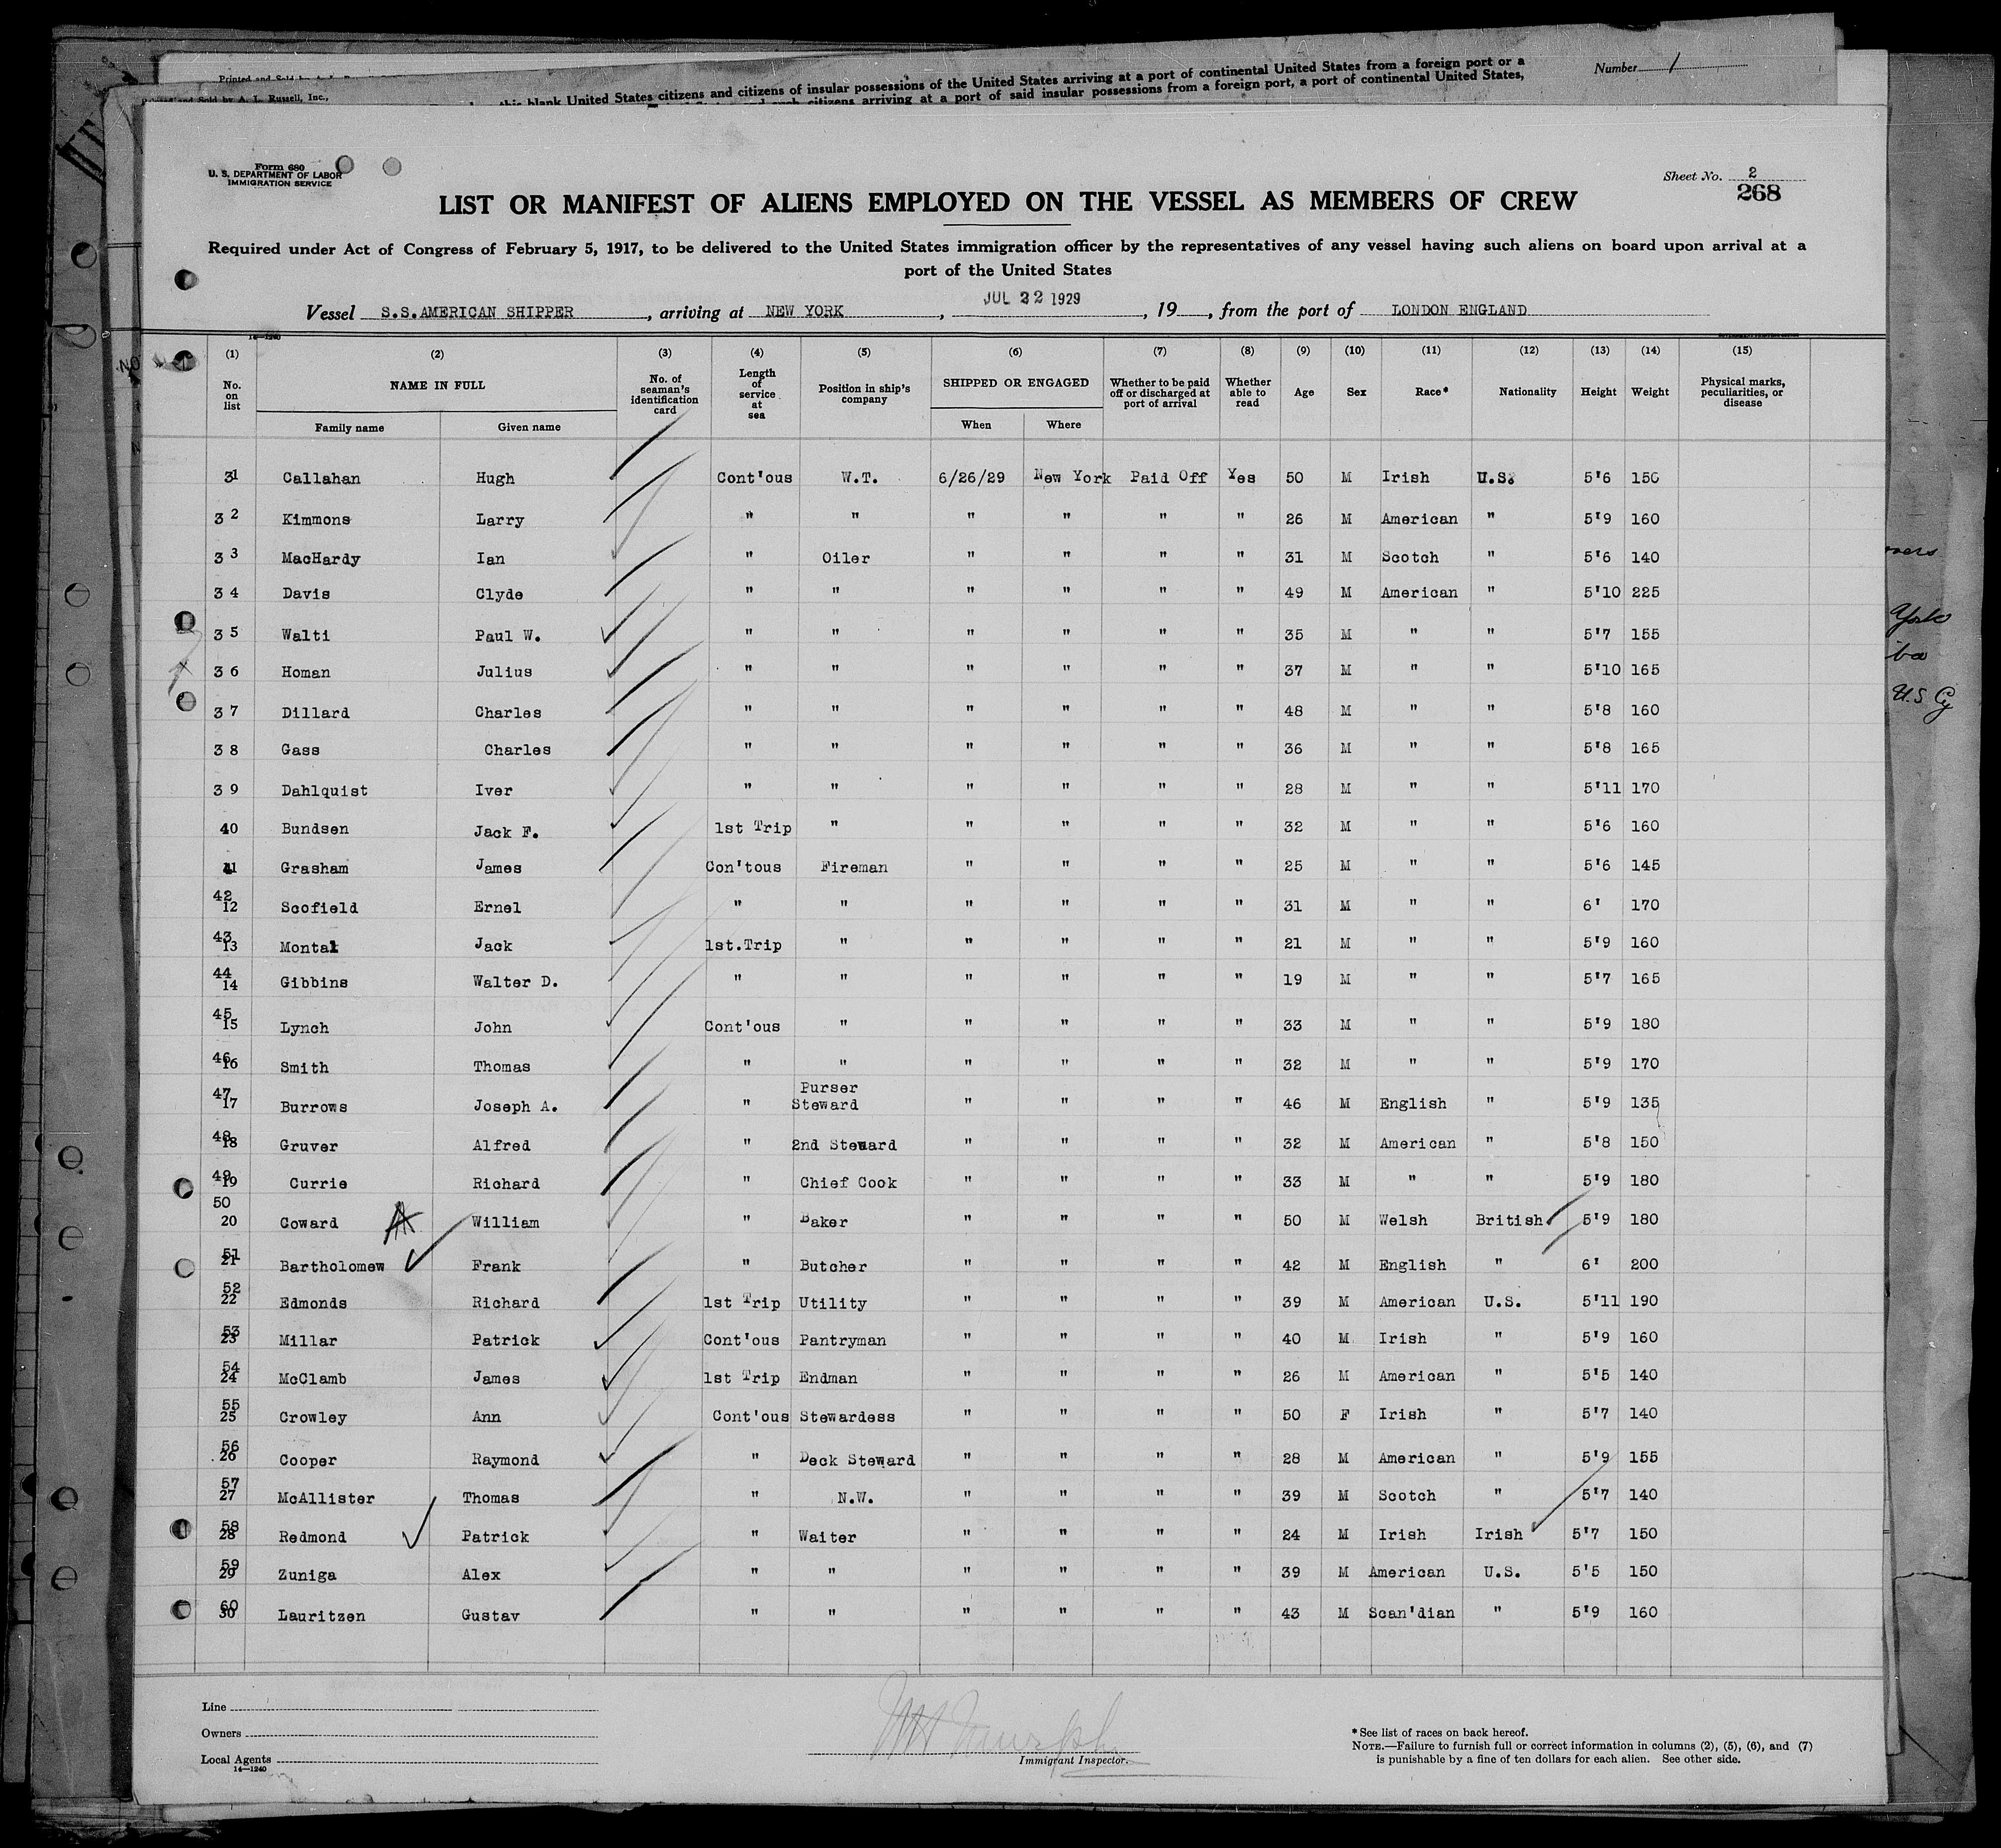 Printed and Sold by
and Sold by A. L. Russell, Inc.,
this blank United States citizens and citizens of insular possessions of the United States arriving at a port of continental United States from a foreign port or a
citizens arriving at a port of said insular possessions from a foreign port, a port of continental United States,
Number 1
Form 680
U. S. DEPARTMENT OF LABOR
IMMIGRATION SERVICE
Sheet No. 2
268
LIST OR MANIFEST OF ALIENS EMPLOYED ON THE VESSEL AS MEMBERS OF CREW
Required under Act of Congress of February 5, 1917, to be delivered to the United States immigration officer by the representatives of any vessel having such aliens on board upon arrival at a
port of the United States
Vessel S.S.AMERICAN SHIPPER, arriving at NEW YORK, JUL 22 1929, 19, from the port of LONDON ENGLAND
14—1240
(1) (2) (3) (4) (5) (6) (7) (8) (9) (10) (11) (12) (13) (14) (15)
No. on list NAME IN FULL No. of seaman's identification card Length of service at sea Position in ship's company SHIPPED OR ENGAGED Whether to be paid off or discharged at port of arrival Whether able to read Age Sex Race* Nationality Height Weight Physical marks, peculiarities, or disease
Family name Given name When Where
31 Callahan Hugh Cont'ous W.T. 6/26/29 New York Paid Off Yes 50 M Irish U.S. 5'6 150
32 Kimmons Larry " " " " " " 26 M American " 5'9 160
33 MacHardy Ian " Oiler " " " " 31 M Scotch " 5'6 140
34 Davis Clyde " " " " " " 49 M American " 5'10 225
35 Walti Paul W. " " " " " " 35 M " " 5'7 155
36 Homan Julius " " " " " " 37 M " " 5'10 165
37 Dillard Charles " " " " " " 48 M " " 5'8 160
38 Gass Charles " " " " " " 36 M " " 5'8 165
39 Dahlquist Iver " " " " " " 28 M " " 5'11 170
40 Bundsen Jack F. 1st Trip " " " " " 32 M " " 5'6 160
41 Grasham James Con'tous Fireman " " " " 25 M " " 5'6 145
42 12 Scofield Ernel " " " " " " 31 M " " 6' 170
43 13 Montal Jack 1st.Trip " " " " " 21 M " " 5'9 160
44 14 Gibbins Walter D. " " " " " " 19 M " " 5'7 165
45 15 Lynch John Cont'ous " " " " " 33 M " " 5'9 180
46 16 Smith Thomas " " " " " " 32 M " " 5'9 170
47 17 Burrows Joseph A. " Purser Steward " " " " 46 M English " 5'9 135
48 18 Gruver Alfred " 2nd Steward " " " " 32 M American " 5'8 150
49 19 Currie Richard " Chief Cook " " " " 33 M " " 5'9 180
50 20 Coward William " Baker " " " " 50 M Welsh British 5'9 180
51 21 Bartholomew Frank " Butcher " " " " 42 M English " 6' 200
52 22 Edmonds Richard 1st Trip Utility " " " " 39 M American U.S. 5'11 190
53 23 Millar Patrick Cont'ous Pantryman " " " " 40 M Irish " 5'9 160
54 24 McClamb James 1st Trip Endman " " " " 26 M American " 5'5 140
55 25 Crowley Ann Cont'ous Stewardess " " " " 50 F Irish " 5'7 140
56 26 Cooper Raymond " Deck Steward " " " " 28 M American " 5'9 155
57 27 McAllister Thomas " N.W. " " " " 39 M Scotch " 5'7 140
58 28 Redmond Patrick " Waiter " " " " 24 M Irish Irish 5'7 150
59 29 Zuniga Alex " " " " " " 39 M American U.S. 5'5 150
60 30 Lauritzen Gustav " " " " " " 43 M Scan'dian " 5'9 160
York
U.S Cy
Line
Owners
Local Agents
14—1240
Immigrant Inspector.
*See list of races on back hereof.
NOTE.—Failure to furnish full or correct information in columns (2), (5), (6), and (7)
is punishable by a fine of ten dollars for each alien. See other side.